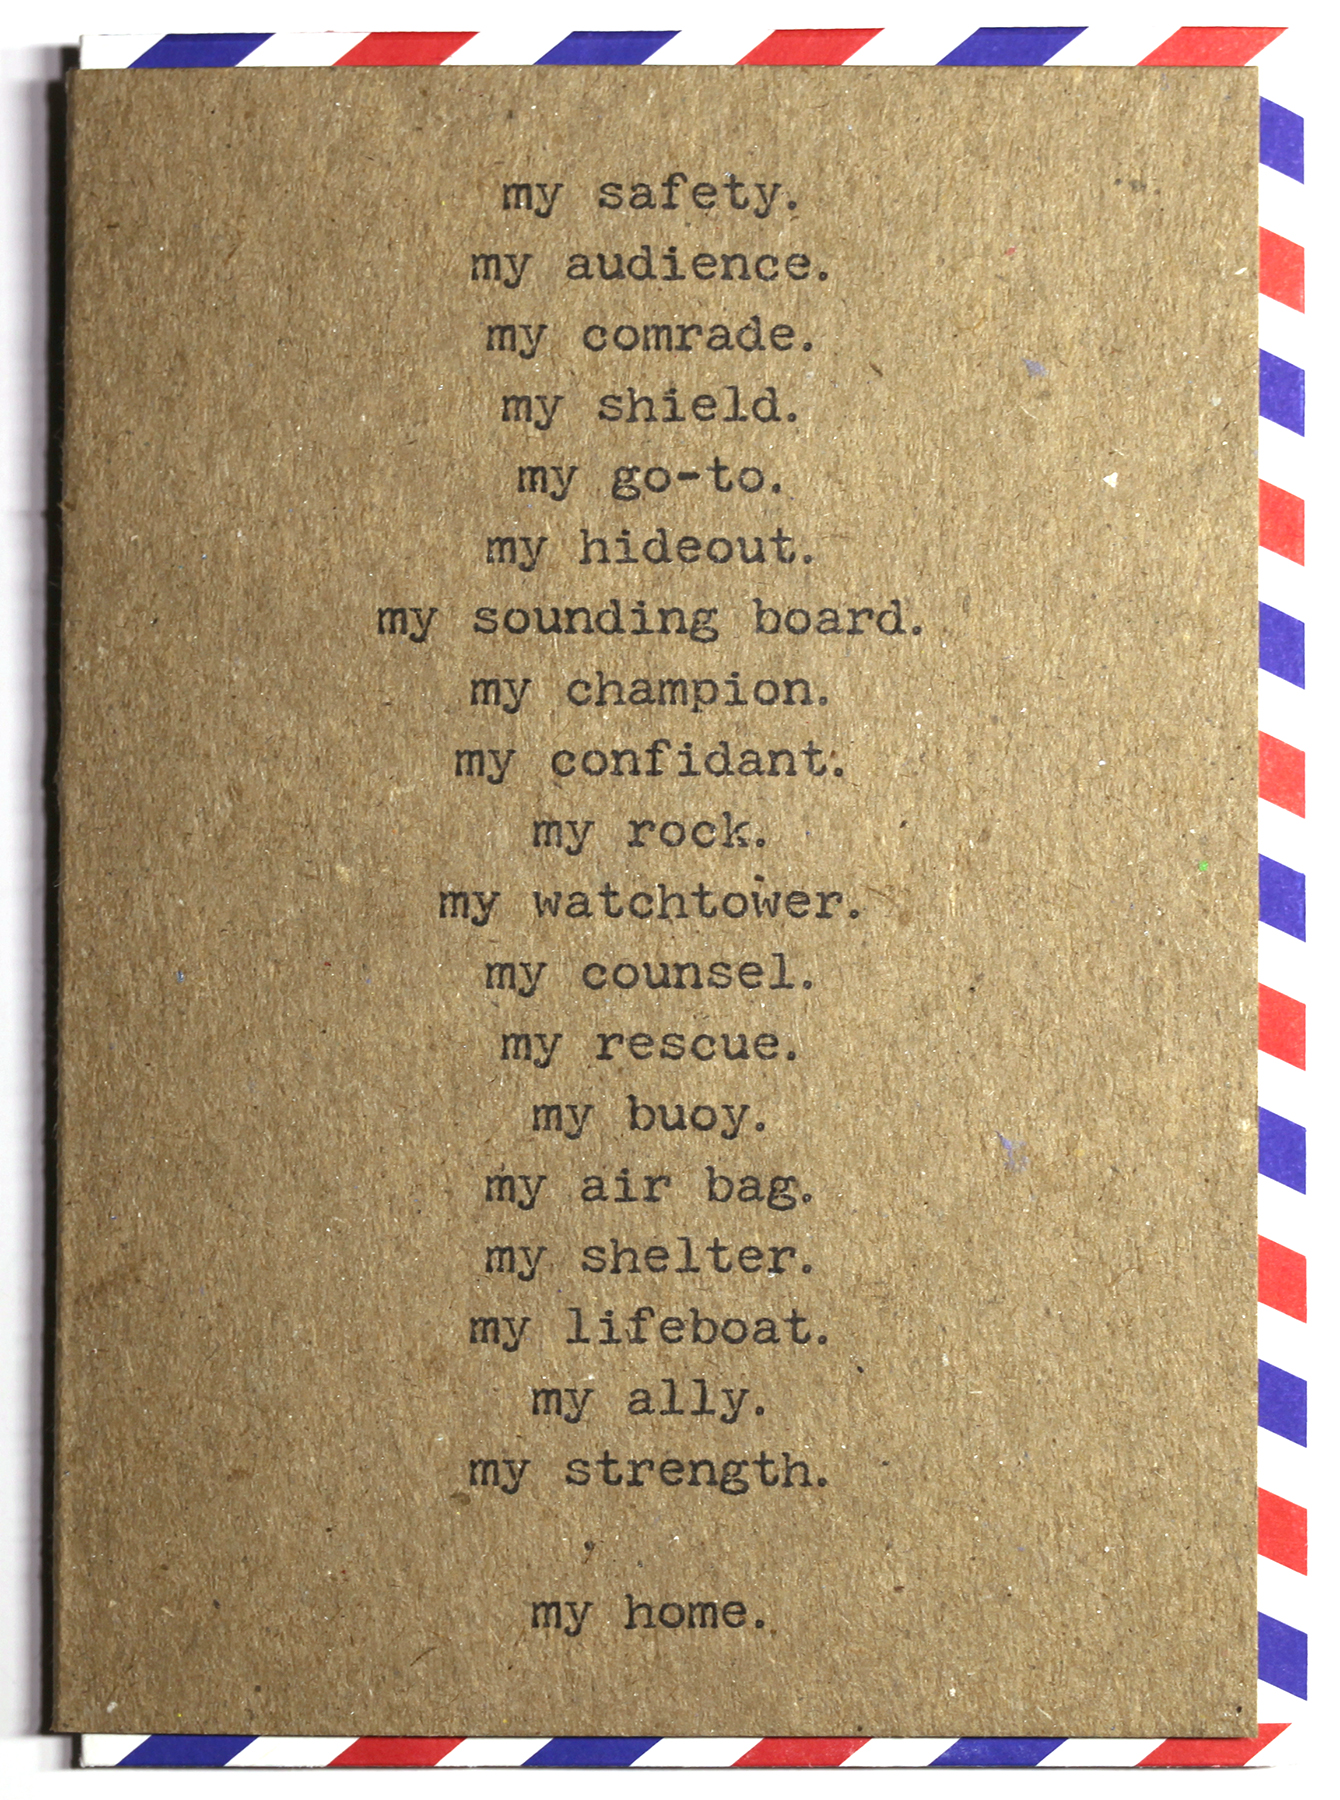 my safety.
my audience.
my comrade.
my shield.
my go-to.
my hideout.
my sounding board.
my champion.
my confidant.
my rock.
my watchtower.
my counsel.
my rescue.
my buoy.
my air bag.
my shelter.
my lifeboat.
my ally.
my strength.
my home.